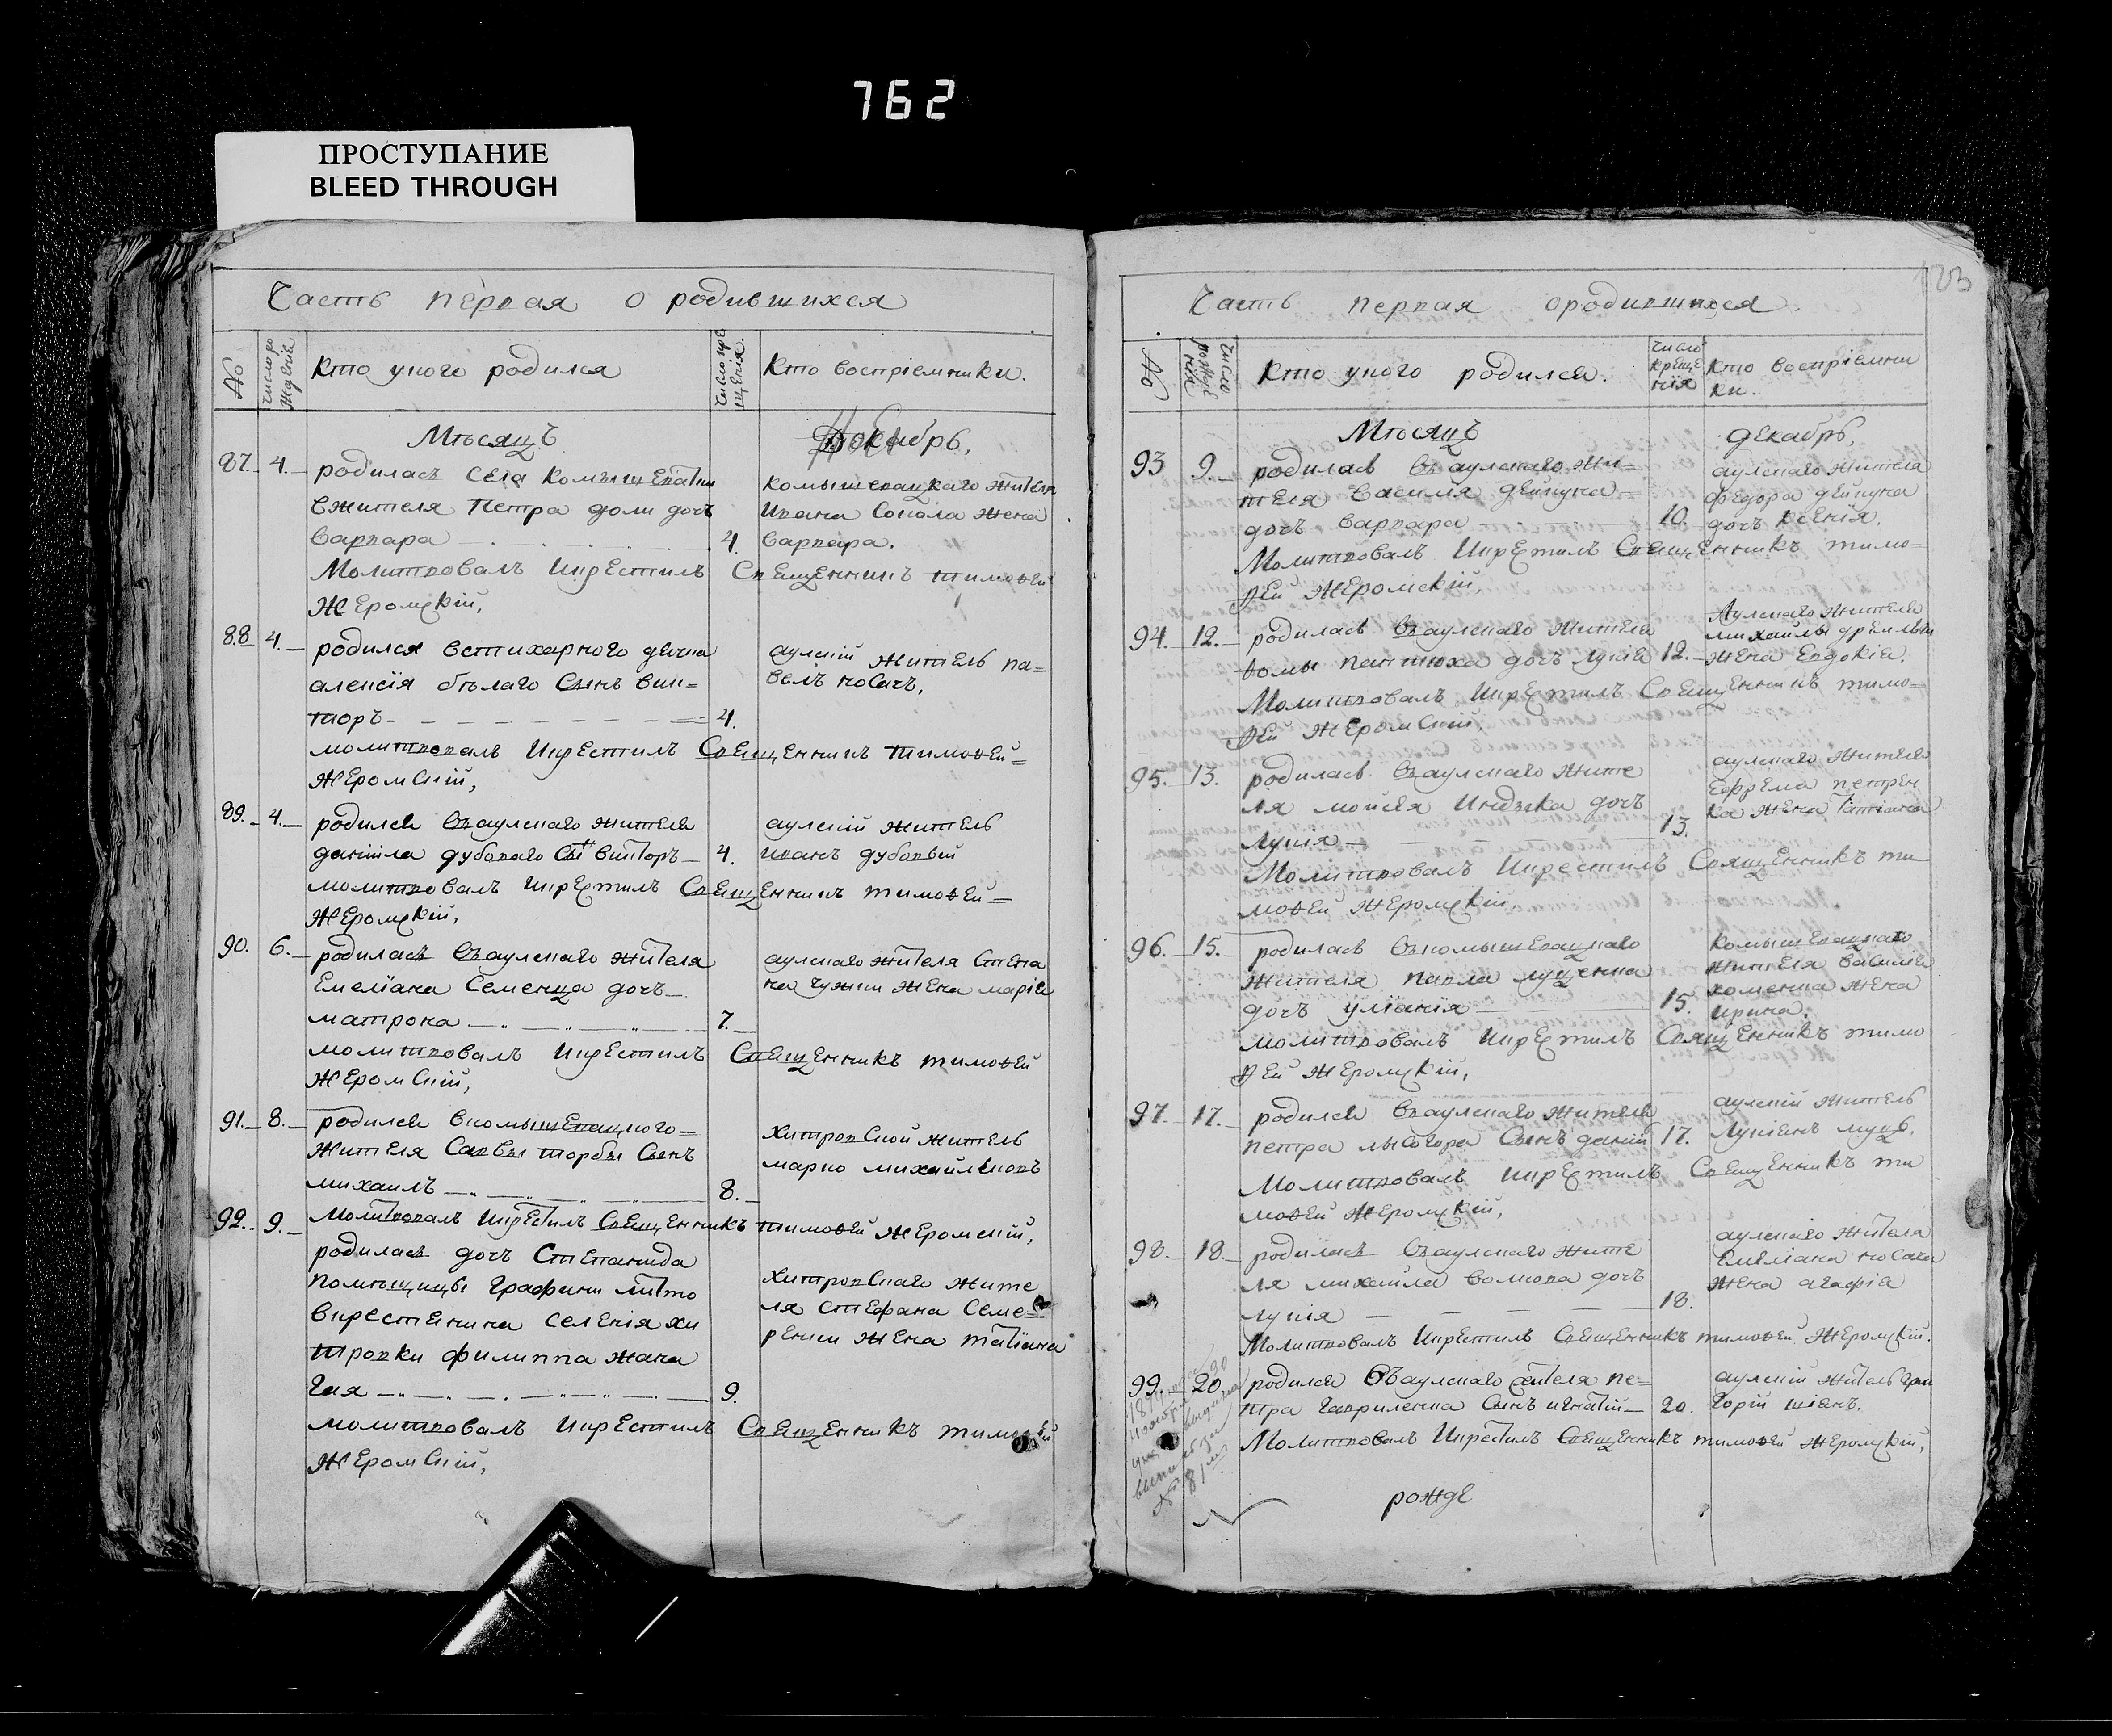 762
ПРОСТУПАНИЕ
BLEED THROUGH
Часть первая о родившихся
№
число ро
жденія
Кто у ного родился
число кре
щенія.
Кто воспріемники.
Мѣсяцъ
87. 4.
родилась села Комышеватки
вжителя Петра доли дочъ
Варвара 4.
комышевацкаго жителя
Ивана Сокола жена
варвара.
Молитвовалъ икрестилъ Священникъ тимоѳей
Жеромскій,
88 4.
родился встихарного дячка
алексія бѣлаго Сынъ вик=
торъ 4.
аулскій житель па=
велъ носачъ,
молитвовалъ икрестилъ Священникъ тимоѳей=
Жеромский,
89. 4.
родился въаулскаго жителя
даніила дубоваго Сынъ викторъ 4.
аулскій житель
иванъ дубовый
молитвовалъ икрестилъ Священникъ тимоѳей
Жеромскій,
90. 6.
родилась въаулскаго жителя
Емеліана Семенца дочъ
матрона 7.
аулскаго жителя Степа
на жена марія
молитвовалъ икрестилъ Священникъ тимоѳей
Жеромский,
91. 8.
родился вкомышевацкого=
жителя Саввы торбы Сынъ
михаилъ 8.
хитровской житель
марко михайликовъ
92. 9.
Молитвовалъ икрестилъ Священникъ тимоѳей Жеромский,
родилась дочъ Степанида
помѣщицы Графини литто
вкрестянина селенія хи
тровки филиппа жана
гая 9.
хитровскаго жите
ля стефана Семе=
ренки жена татіана
молитвовалъ икрестилъ Священникъ тимоѳей
Жеромский,
103
Часть первая ородившихся.
№
число
рожде
нія
Кто у ного родился.
число
креще
нія
Кто воспріемни
ки.
Мѣсяцъ декабрь,
93 9.
родилась въаулскаго жи=
теля василя дейнука=
дочъ варвара 10.
аулскаго жителя
федора дейнука
дочъ ксенія.
Молитвовалъ икрестилъ Священникъ тимо=
ѳей Жеромскій,
94. 12.
родилась въаулскаго жителя
ѳомы пантюха дочъ лукія 12.
Аулскаго жителя
михайлы
жена евдокія.
Молитвовалъ икрестилъ Священникъ тимо=
ѳей Жеромский,
95. 13.
родилась въаулскаго жите
ля мойсея Индыка дочъ
лукія 13.
аулскаго жителя
Ефрема петрен
ка жена татіана
Молитвовалъ икрестилъ Священникъ ти
моѳей Жеромскій,
96. 15.
родилась въкомышевацкаго
жителя павла луценка
дочъ уліанія 15.
Комышевацкаго
жителя василія
хоменка жена
ирина.
молитвовалъ икрестилъ Священникъ тимо
ѳей Жеромскій,
97. 17.
родился въаулскаго жителя
петра лысогора Сынъ даніи 17.
аулский житель
Лукіянъ муцъ.
Молитвовалъ икрестилъ Священникъ ти
моѳей Жеромскій,
98. 18.
родилась въаулскаго жите
ля михайла волкова дочъ
лукія 18.
аулскаго жителя
Емеліана носача
жена агафія
Молитвовалъ икрестилъ Священникъ тимоѳей Жеромскій.
99. 20.
родился въаулскаго жителя пе=
тра гавриленка Сынъ игнатій 20.
аулский житель гри
горій шіянъ.
Молитвовалъ икрестилъ Священникъ тимоѳей Жеромскій,
рожде